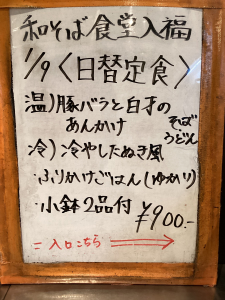 和そば食堂入福
1/9〈日替定食〉
温)豚バラと白才の
あんかけ
そば
うどん
冷)冷やしたぬき風
・ふりかけごはん(ゆかり)
・小鉢2品付 ¥900-
＝入口こちら ⟹